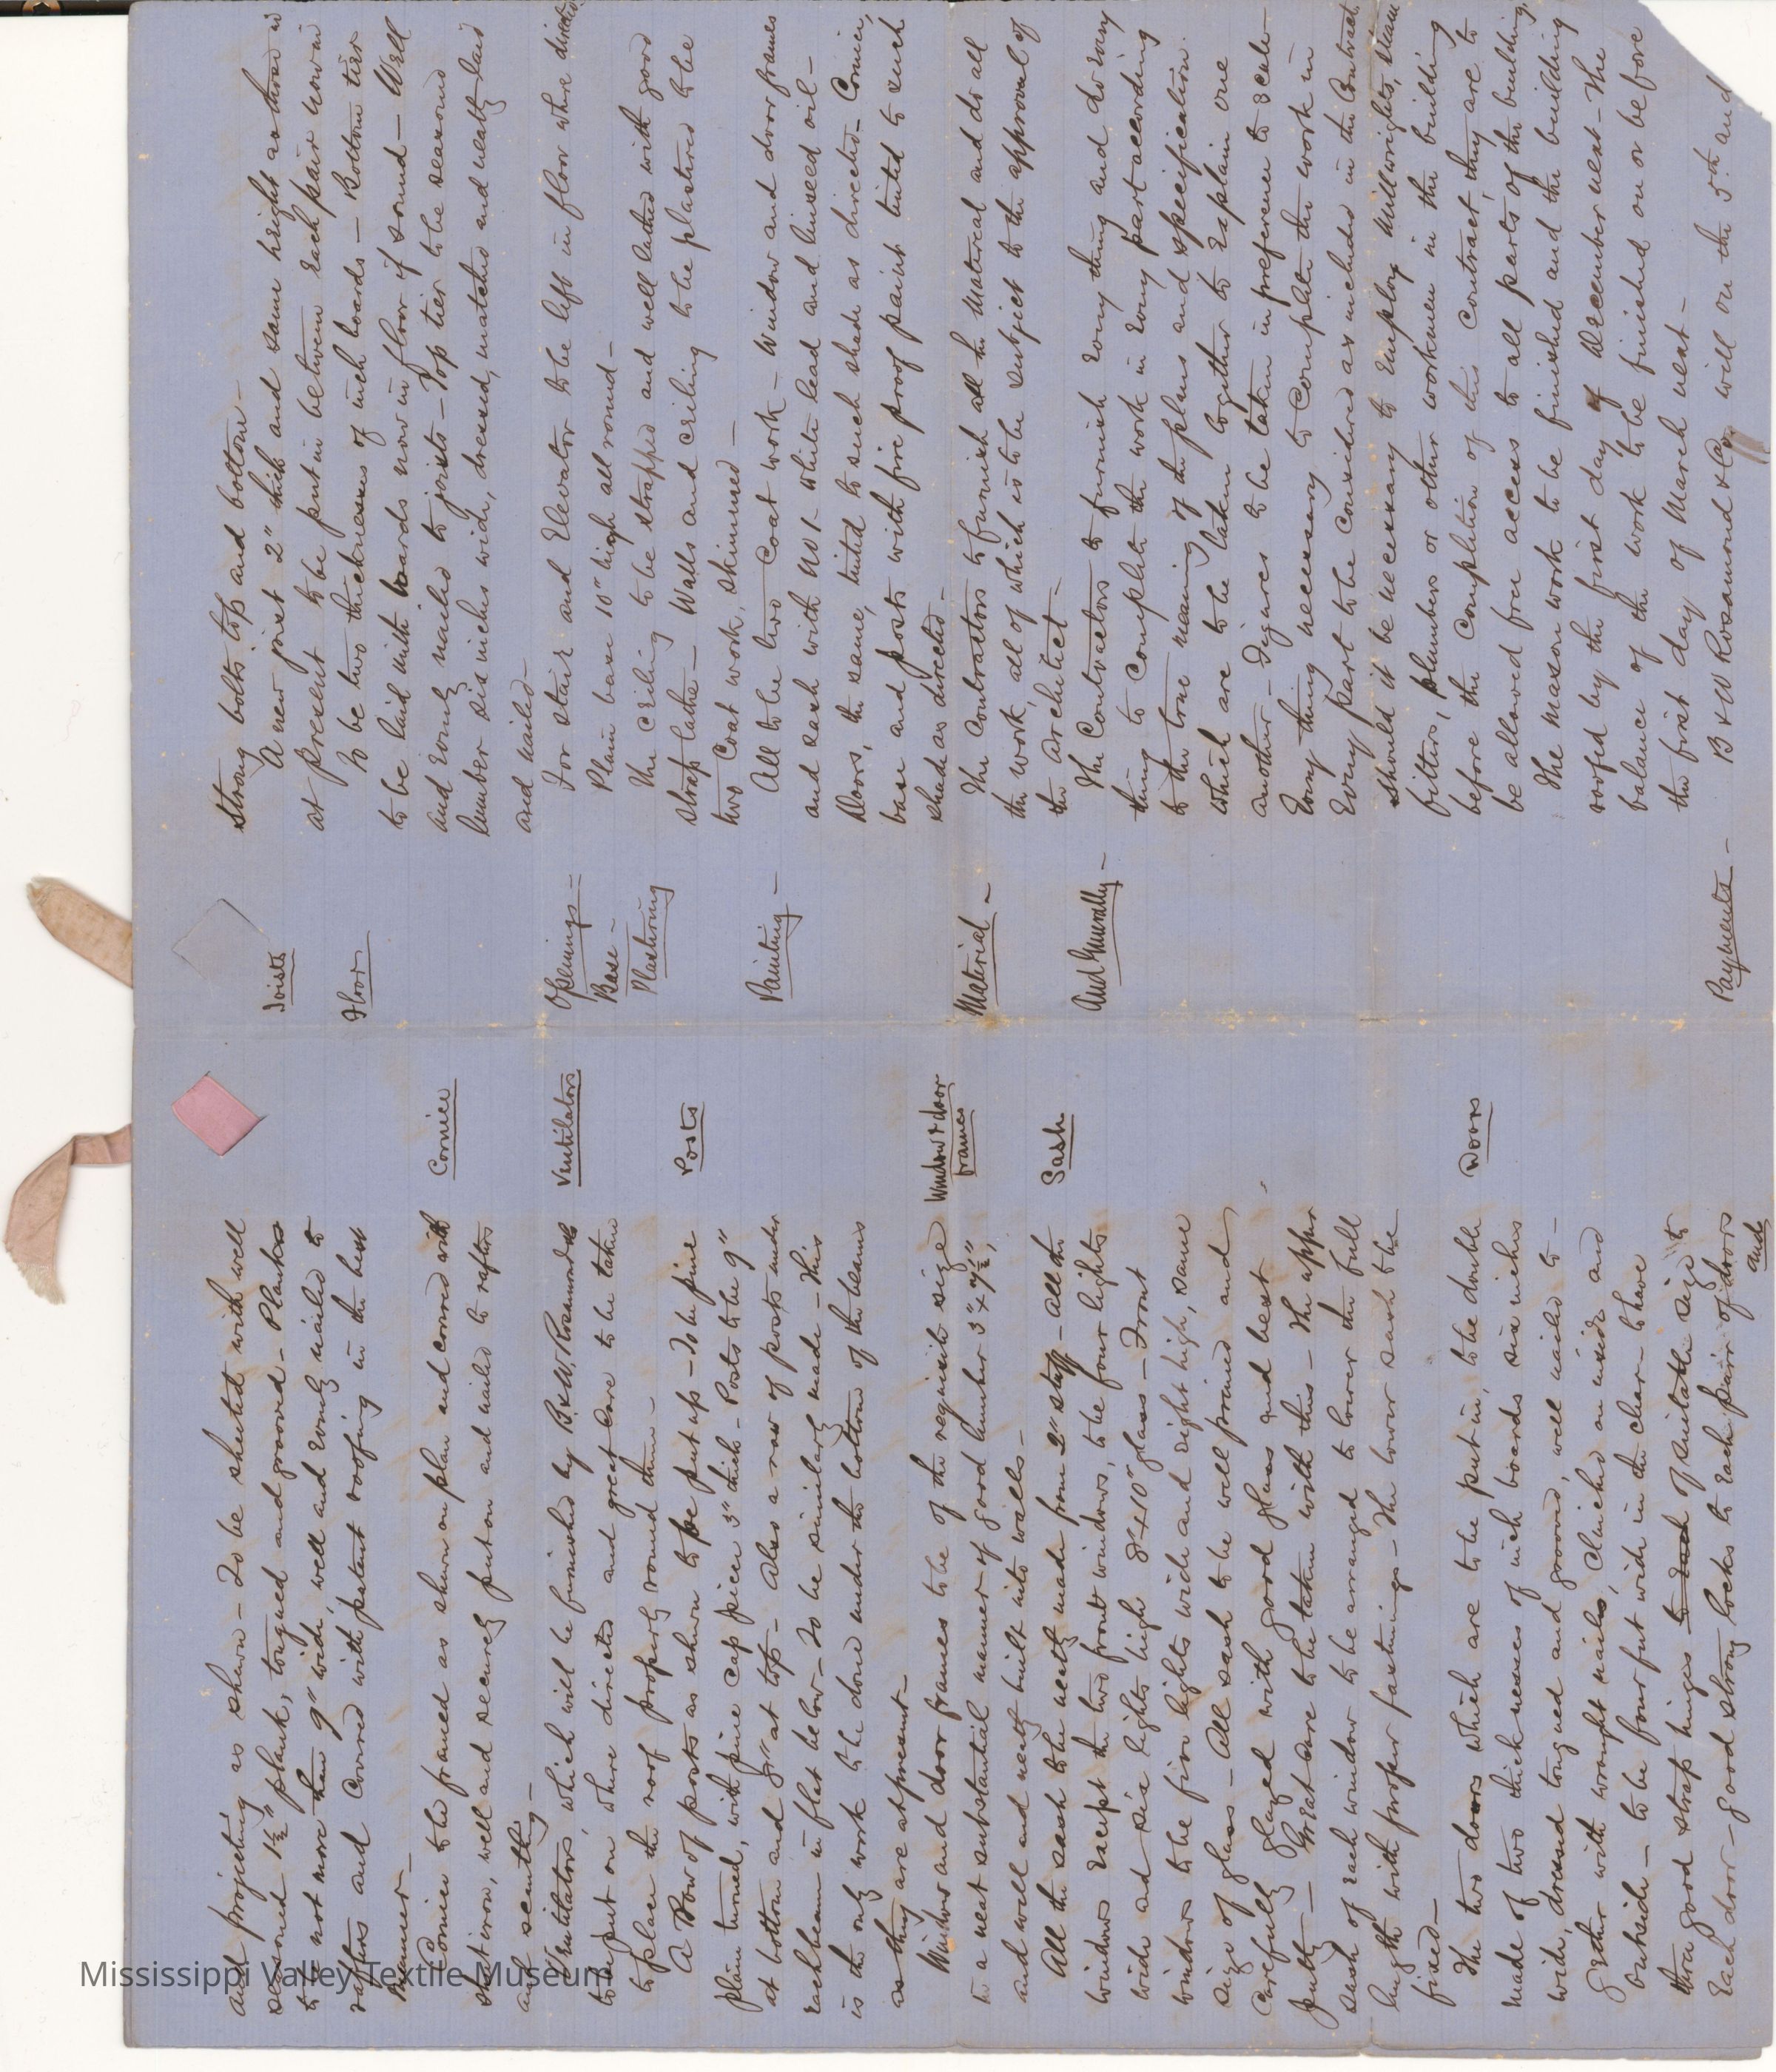 and projecting as shown - To be sheeted with well
seasoned 1½" plank, tongued and grooved - Planks
to be not more than 9" wide, well and evenly nailed to
rafters and covered with patent roofing in the best
manner -
Cornice
Cornice to be framed as shown on plan and covered with
sheet iron, well and securely put on and nailed to rafters
and scantling -
Ventilators
Ventilators, which will be furnished by B. & W. Rosamond to
be put on where directed and great care to be taken
to place the roof properly round them -
Posts
A Row of posts as shown to be put up - To be pine
plain turned, with pine cap pieces 3" thick - Posts to be 9"
at bottom and 8" at top - Also a row of posts under
each beam in flat below - To be similarly made - This
is the only work to be done under the bottom of the beams
as they are at present -
Window & door
frames
Window and door frames to be of the requisite size
in a neat substantial manner of good lumber 3" x 7½",
and well and neatly built into walls -
Sash
All the sash to be neatly made from 2" stuff - All the
windows except the two front windows, to be four lights
wide and six lights high 8" x 10" glass - Front
windows to be five lights wide and eight high, same
size of glass - All sash to be well primed and
carefully glazed with good glass and best
putty - Great care to be taken with this - The upper
sash of each window to be arranged to lower the full
length with proper fastenings - The lower sash to be
fixed -
Doors
The two doors which are to be put in, to be double
made of two thicknesses of inch boards six inches
wide, dressed tongued and grooved, well nailed to-
gether with wrought nails, clinched on inside and
outside - to be four feet wide in the clear - to have
three good strap hinges to each of suitable size to
each door - good strong locks to each pair of doors
and
strong bolts top and bottom -
Joists
A new joist 2" thick and same height as those in
at present to be put in between each pair now in
Floor
To be two thicknesses of inch boards - Bottom tier
to be laid with boards now in floor if sound - Well
and evenly nailed to joists - Top tier to be seasoned
lumber six inches wide, dressed, matched and neatly laid
and nailed -
Openings -
For stair and Elevator to be left in floor where directed
Base -
Plain base 10" high all round -
Plastering
The ceiling to be strapped and well lathed with good
strap laths - Walls and ceiling to be plastered to be
two coat work, skimmed -
Painting -
All to be two coat work - Window and door frames
and sash with No 1 - white lead and linseed oil -
Doors, the same, tinted to such shade as directed - Cornice,
base and posts with fire proof paint tinted to such
shade as directed -
Material -
The Contractors to furnish all the material and do all
the work, all of which is to be subject to the approval of
the Architect -
And Generally -
The Contractors to furnish every thing and do every
thing to complete the work in every part according
to the true meaning of the plans and specification.
which are to be taken together to explain one
another - Figures to be taken in preference to scale -
Every thing necessary to complete the work in
every part to be considered as included in the contract.
Should it be necessary to employ millwrights, steam
fitters, plumbers or other workmen in the building
before the completion of this contract, they are to
be allowed free access to all parts of the building,
The mason work to be finished and the building
roofed by the first day of December next - The
balance of the work to be finished on or before
the first day of March next -
Payments -
B & W Rosamond & Co. will on the 5th and
Mississippi Valley Textile Museum